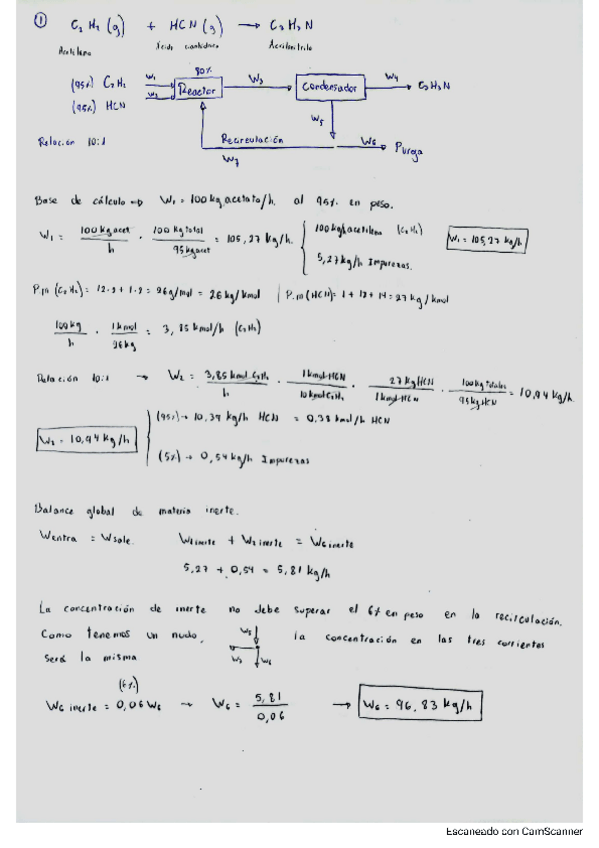 ① C₂H₂(g) + HCN(g) → C₃H₃N
Acetileno Ácido cianhídrico Acrilonitrilo
80%
(95%) C₂H₂ W₁ Reactor W₃ Condensador W₄ C₃H₃N
(95%) HCN W₂
W₅
Relación 10:1 Recirculación W₆ Purga
W₇
Base de cálculo → W₁ = 100 kg acetato/h. al 95% en peso.
W₁ = 100 kg acet / h · 100 kg total / 95 kg acet = 105,27 kg/h. { 100 kg/h acetileno (C₂H₂) W₁ = 105,27 kg/h
5,27 kg/h Impurezas.
P.m (C₂H₂) = 12·2 + 1·2 = 26 g/mol = 26 kg/kmol | P.m (HCN) = 1 + 12 + 14 = 27 kg/kmol
100 kg / h · 1 kmol / 26 kg = 3,85 kmol/h (C₂H₂)
Relación 10:1 → W₂ = 3,85 kmol C₂H₂ / h · 1 kmol HCN / 10 kmol C₂H₂ · 27 kg HCN / 1 kmol HCN · 100 kg totales / 95 kg HCN = 10,94 kg/h.
W₂ = 10,94 kg/h { (95%) → 10,39 kg/h HCN = 0,38 kmol/h HCN
(5%) → 0,54 kg/h Impurezas
Balance global de materia inerte.
Wentra = Wsale. W₁ inerte + W₂ inerte = W₆ inerte
5,27 + 0,54 = 5,81 kg/h
La concentración de inerte no debe superar el 6% en peso en la recirculación.
Como tenemos un nudo, W₅ W₇ W₆ la concentración en las tres corrientes
será la misma
(6%)
W₆ inerte = 0,06 W₆ → W₆ = 5,81 / 0,06 → W₆ = 96,83 kg/h
Escaneado con CamScanner